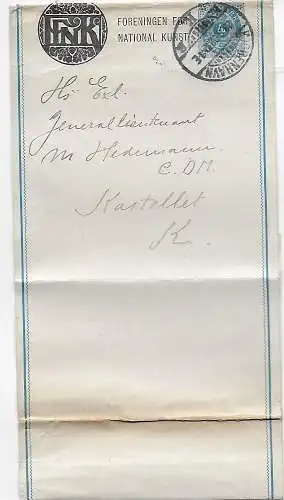 FNK
FORENINGEN FOR
NATIONAL KUNST
Hs. Exl.
Generallieutenant
M Hedemann
C. DM.
Kastellet
K.